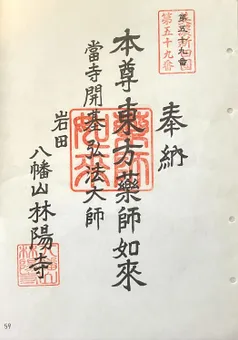 第五十九番
奉納
本尊東方藥師如來
當寺開基弘法大師
岩田
八幡山林陽寺
59